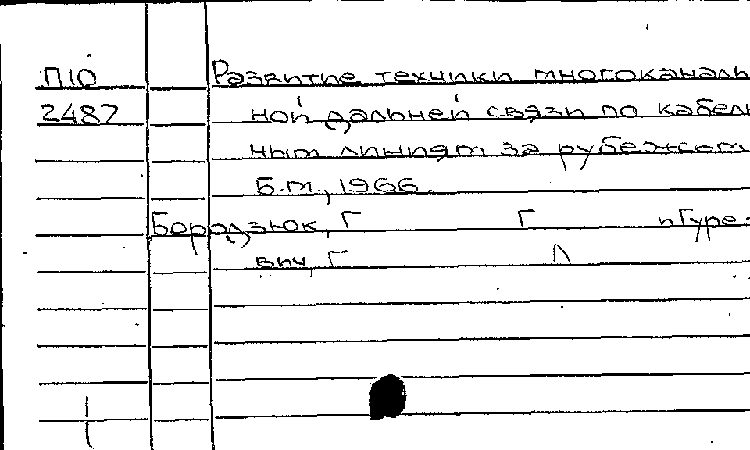 П10 Развитие техники многоканаль
2487 ной дальней связи по кабель
ным линиям за рубежом
Б.м., 1966.
Бородзюк, Г Г и Гуре-
вич, Г Л